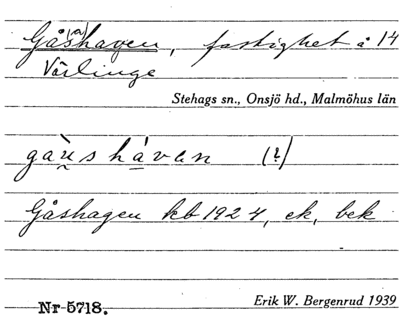 Gås(a)hagen, fastighet å 14
Värlinge
Stehags sn., Onsjö hd., Malmöhus län
gàu̯shávan (?)
Gåshagen kb 1924, ek, bek
Nr 5718.
Erik W. Bergenrud 1939